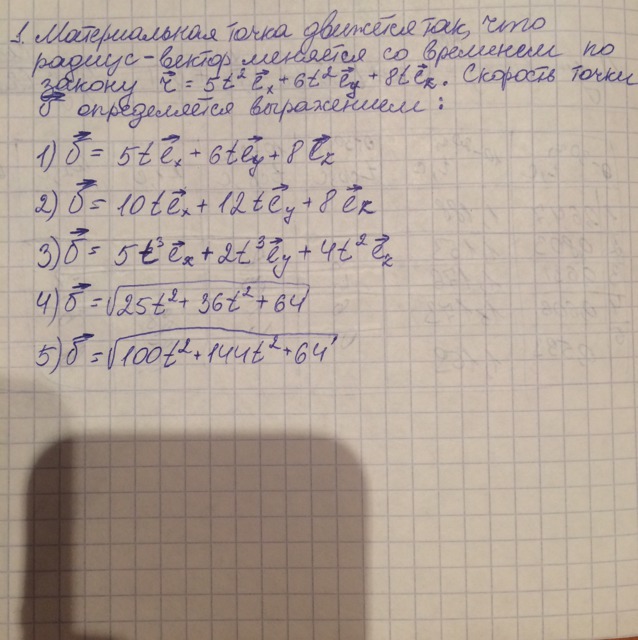 1. Материальная точка движется так, что
радиус-вектор меняется со временем по
закону r⃗ = 5t² e⃗x + 6t² e⃗y + 8t e⃗k. Скорость точки
υ⃗ определяется выражением:
1) υ⃗ = 5t e⃗x + 6t e⃗y + 8 e⃗k
2) υ⃗ = 10t e⃗x + 12t e⃗y + 8 e⃗k
3) υ⃗ = 5t³ e⃗x + 2t³ e⃗y + 4t² e⃗k
4) υ⃗ = √(25t² + 36t² + 64)
5) υ⃗ = √(100t² + 144t² + 64)